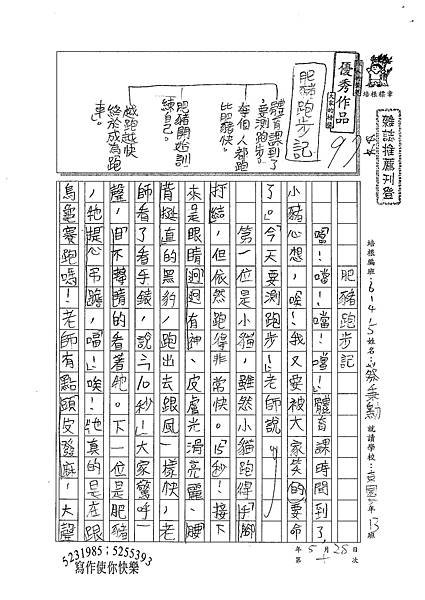 培根標章
雜誌推薦刊登
優秀作品
97
肥豬跑步記
體育課到了
要測跑步。
每個人都跑
比肥豬快。
肥豬開始訓
練自己。
越跑越快
終於成為跑
車。
培根編班:61415姓名:蔡秉勳 就讀學校:
年13班
肥豬跑步記
噹!噹!噹!噹!體育課時間到了,
小豬心想,唉!我又要被大家笑的要命
了。「今天要測跑步!」老師說。
第一位是小貓,雖然小貓跑得手腳
打結,但依然跑得非常快。「15秒!」接下
來是眼睛迥迥有神、皮膚光滑亮麗、腰
背挺直的黑豹,跑出去跟風一樣快,老
師看了看手錶,說:「10秒!」大家驚呼一
聲,目不轉睛的看著牠。下一位是肥豬
,牠提心吊膽,噹!唉!牠真的是在跟
烏龜賽跑嗎!老師有點頭皮發麻,大聲
年5月28日
第 次
5231985;5255393
寫作使你快樂